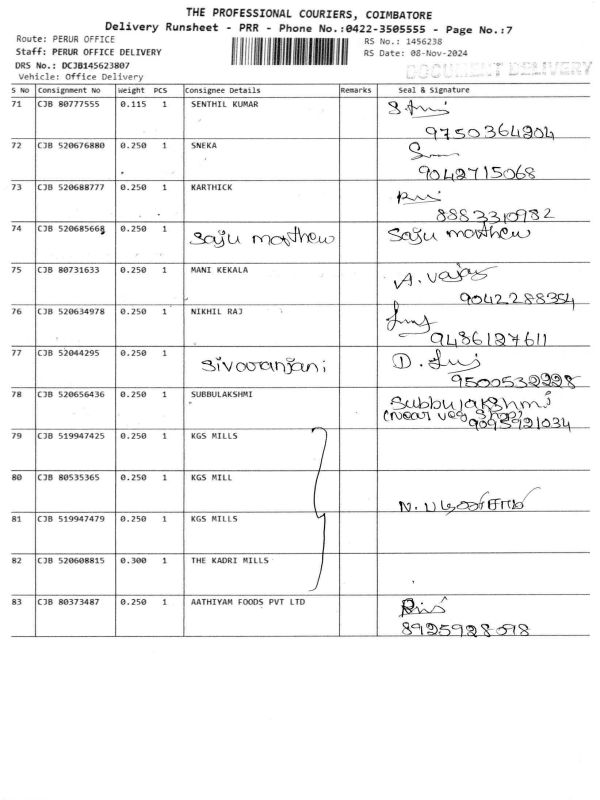 THE PROFESSIONAL COURIERS, COIMBATORE
Delivery Runsheet - PRR - Phone No.:0422-3505555 - Page No.:7
Route: PERUR OFFICE RS No.: 1456238
Staff: PERUR OFFICE DELIVERY RS Date: 08-Nov-2024
DRS No.: DCJB145623807 DOCUMENT DELIVERY
Vehicle: Office Delivery
S No Consignment No Weight PCS Consignee Details Remarks Seal & Signature
71 CJB 80777555 0.115 1 SENTHIL KUMAR
9750364204
72 CJB 520676880 0.250 1 SNEKA
9042715068
73 CJB 520688777 0.250 1 KARTHICK
8883310982
74 CJB 520685668 0.250 1 Saju marthew Saju marthew
75 CJB 80731633 0.250 1 MANI KEKALA A. Vajay
9042288354
76 CJB 520634978 0.250 1 NIKHIL RAJ
9486127611
77 CJB 52044295 0.250 1 Sivaranjani D.
9500532228
78 CJB 520656436 0.250 1 SUBBULAKSHMI Subbulakshmi
(Near veg shop)
9095921034
79 CJB 519947425 0.250 1 KGS MILLS
80 CJB 80535365 0.250 1 KGS MILL N.
81 CJB 519947479 0.250 1 KGS MILLS
82 CJB 520608815 0.300 1 THE KADRI MILLS
83 CJB 80373487 0.250 1 AATHIYAM FOODS PVT LTD
8925928098